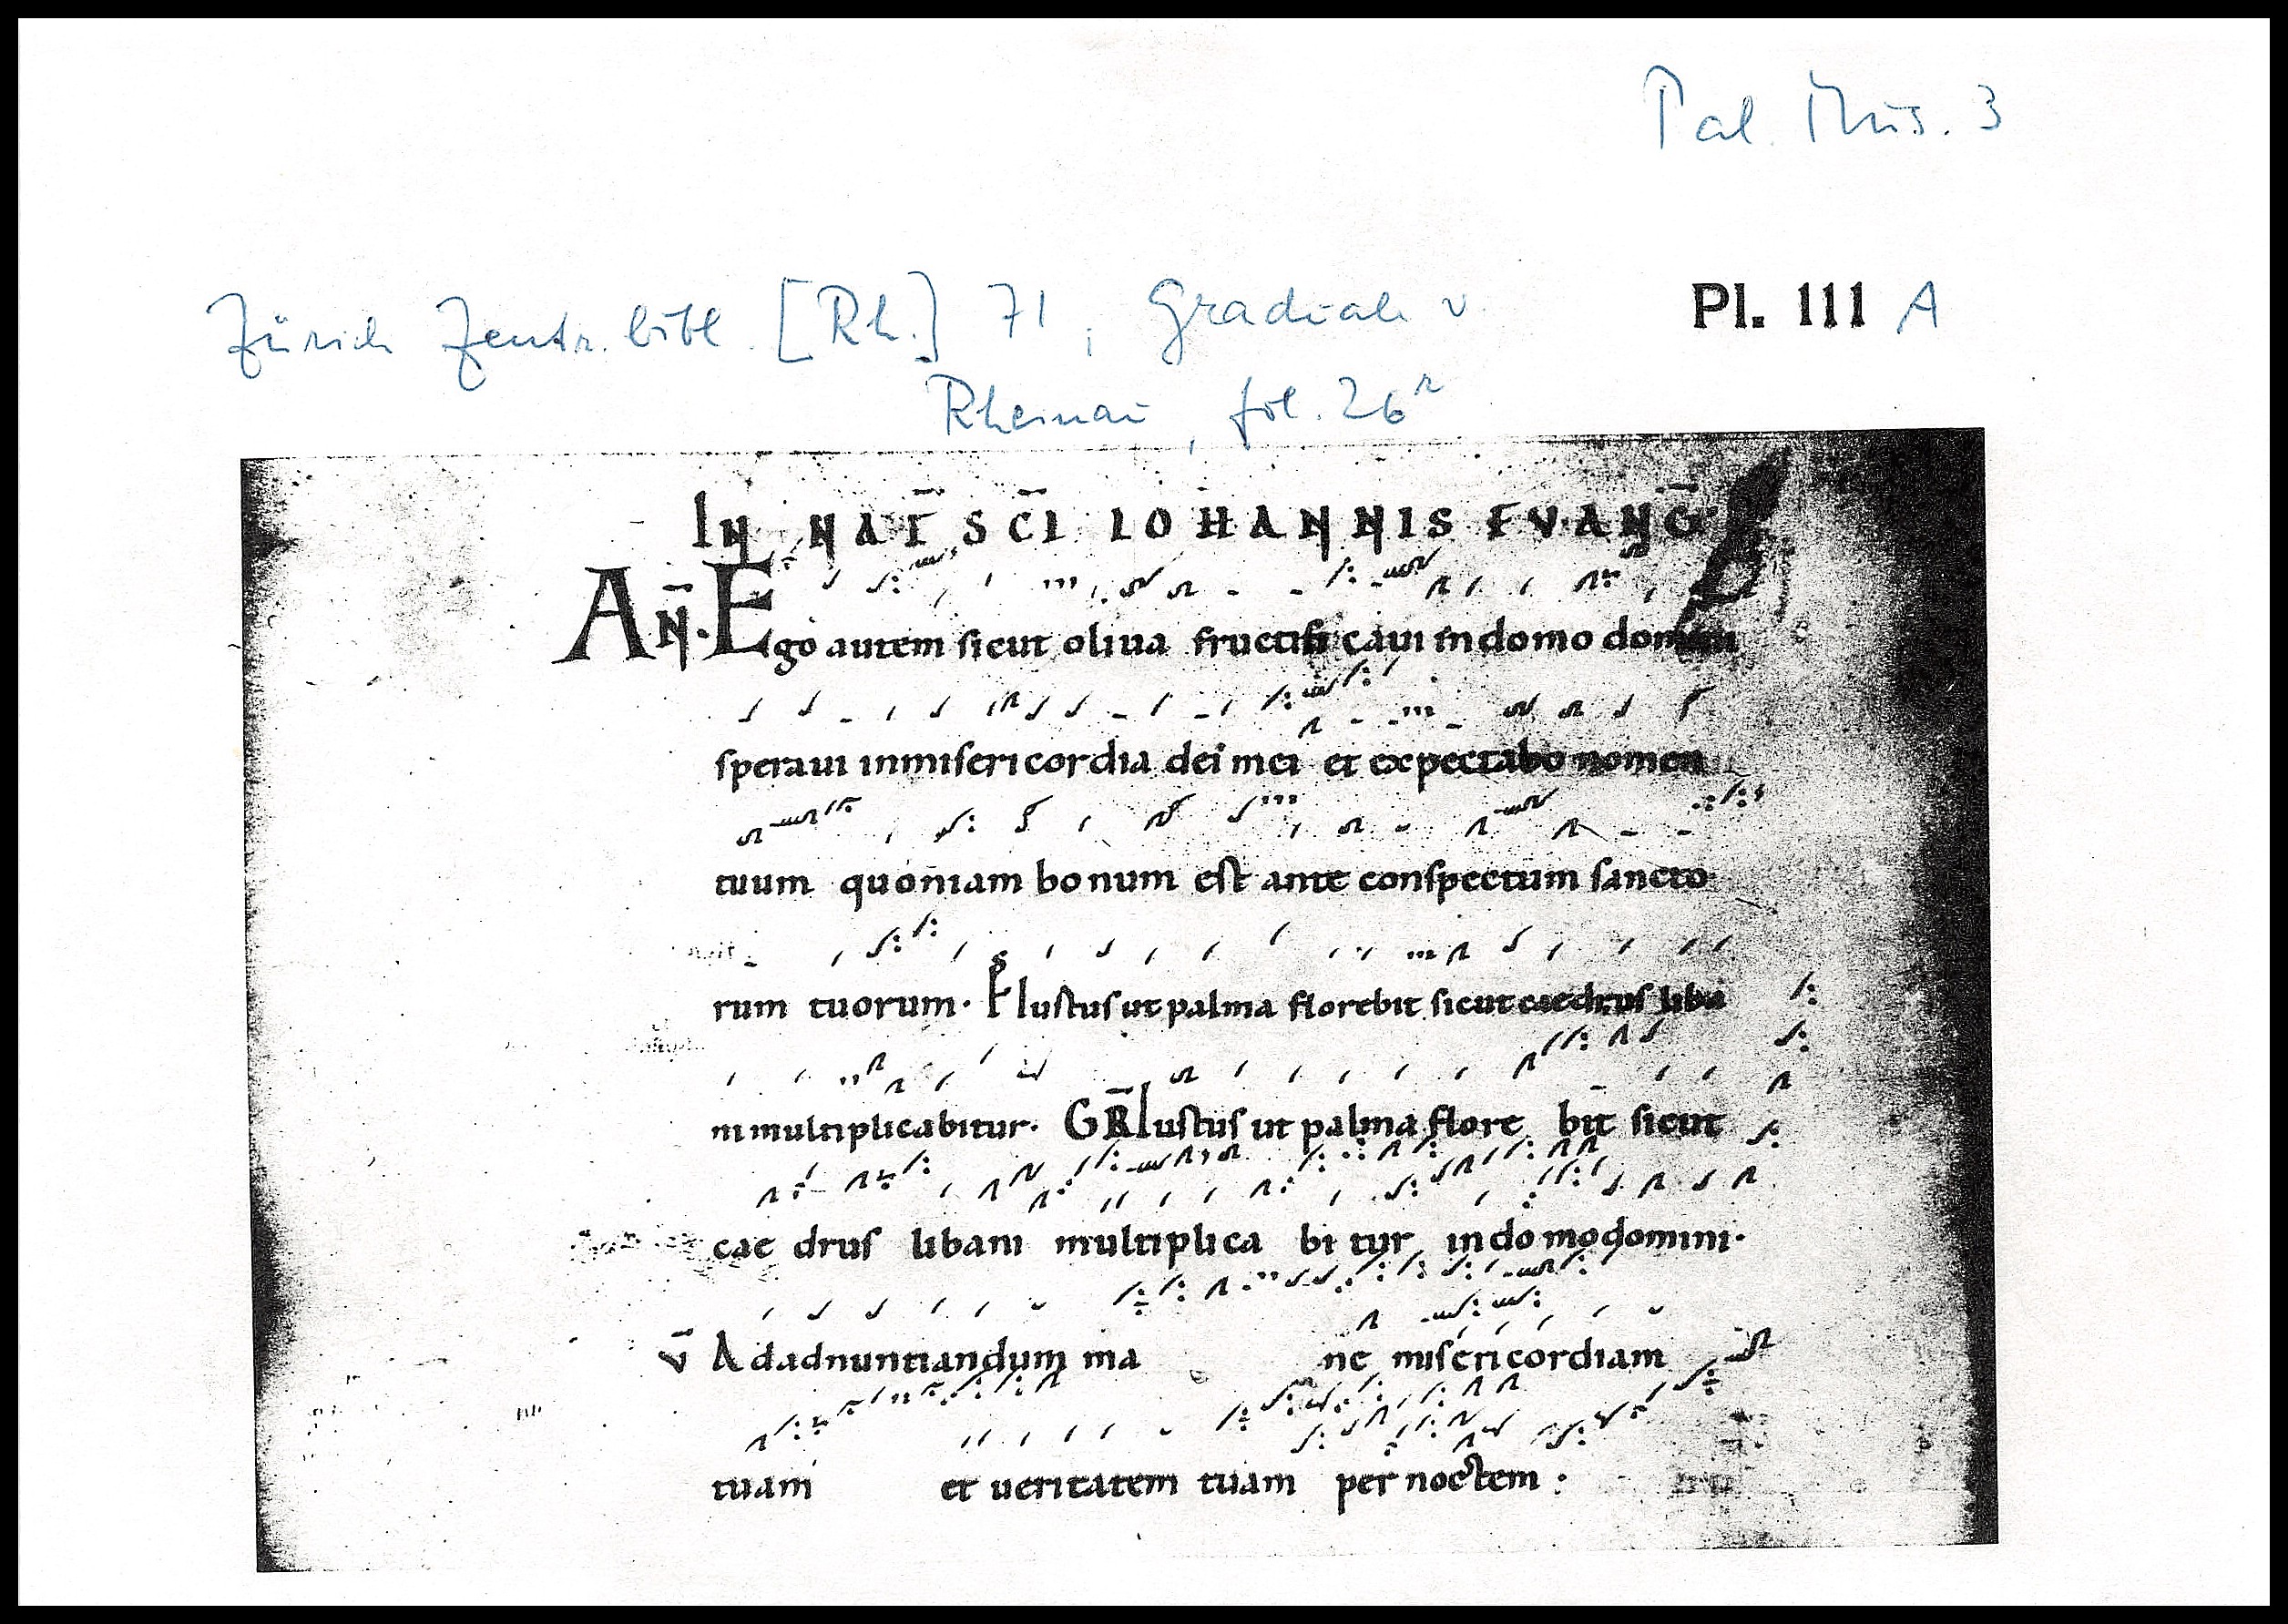 Pal. Mus. 3
Zürich Zentr. bibl. [Rh.] 71, Graduale v.
Pl. 111 A
Rheinau, fol. 26r
IN NAT̄ SC̄I IOHANNIS EVANḠ
AN̄. Ego autem sicut oliua fructificaui in domo domini
speraui in misericordia dei mei et expectabo nomen
tuum quoniam bonum est ante conspectum sancto
rum tuorum. Ps Iustus ut palma florebit sicut caedrus liba
ni multiplicabitur. GR̄ Iustus ut palma flore bit sicut
cae drus libani multiplica bi tur in domo domini.
V̄ Ad adnuntiandum ma ne misericordiam
tuam et ueritatem tuam per noctem :